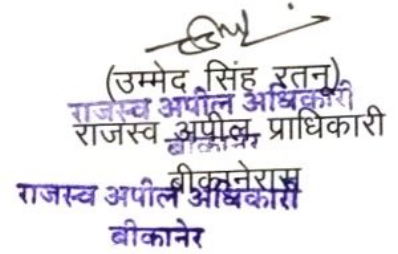 (उम्मेद सिंह रतनू)
राजस्व अपील अधिकारी
राजस्व अपील प्राधिकारी
बीकानेर
राजस्व अपील अधिकारी
बीकानेर